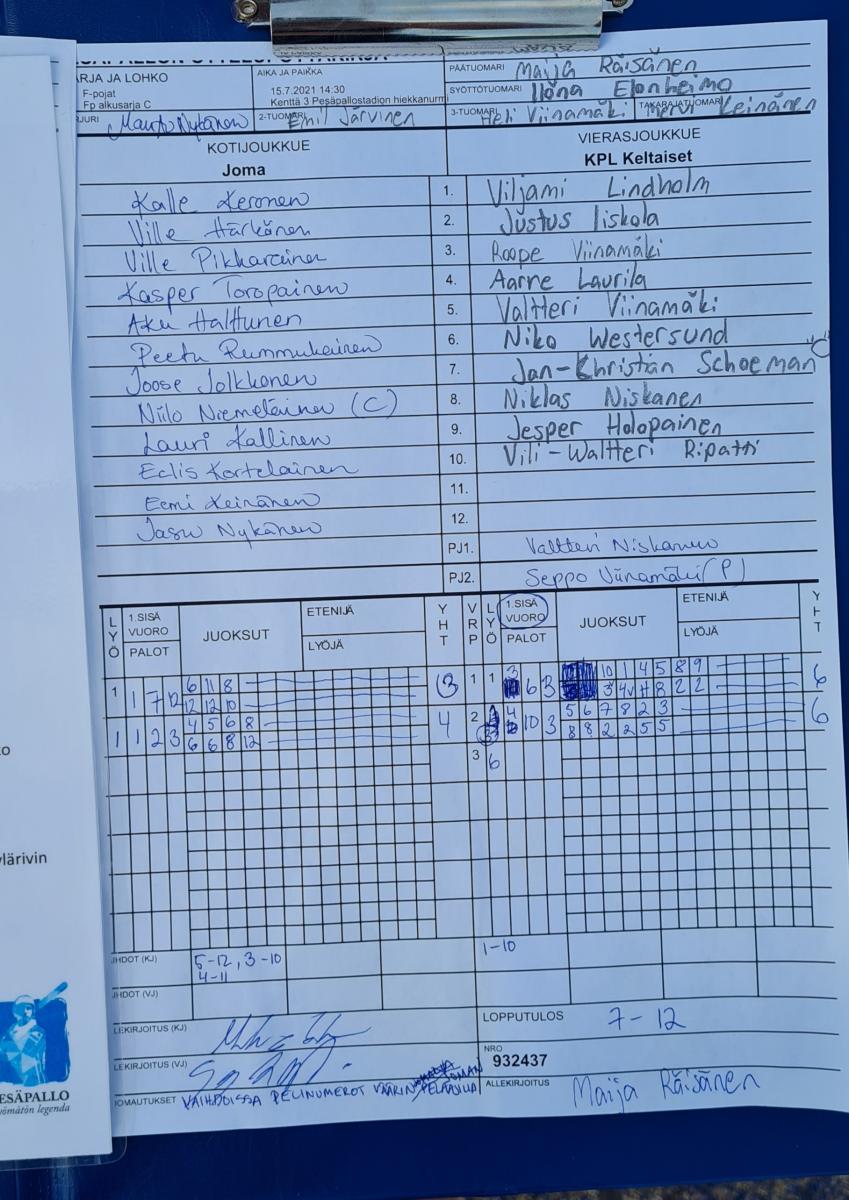 ARJA JA LOHKO
F-pojat
Fp alkusarja C
AIKA JA PAIKKA
15.7.2021 14:30
Kenttä 3 Pesäpallostadion hiekkanurmi
PÄÄTUOMARI Maija Räisänen
SYÖTTÖTUOMARI Ilona Elonheimo
2-TUOMARI Emil Järvinen
3-TUOMARI Heli Viinamäki TAKARAJATUOMARI Mervi Keinänen
KOTIJOUKKUE
Joma
VIERASJOUKKUE
KPL Keltaiset
Kalle Keronen 1. Viljami Lindholm
Ville Härkönen 2. Justus Iiskola
Ville Pikkarainen 3. Roope Viinamäki
Kasper Toropainen 4. Aarne Laurila
Aku Halttunen 5. Valtteri Viinamäki
Peetu Rummukainen 6. Niko Westersund
Joose Jolkkonen 7. Jan-Christian Schoeman
Niilo Niemeläinen (C) 8. Niklas Niskanen
Lauri Kallinen 9. Jesper Holopainen
Eelis Kortelainen 10. Vili-Waltteri Ripatti
Eemi Keinänen 11.
Jasu Nykänen 12.
PJ1. Valtteri Niskanen
PJ2. Seppo Viinamäki (P)
LYÖ 1.SISÄ VUORO PALOT JUOKSUT ETENIJÄ LYÖJÄ YHT VRP LYÖ 1.SISÄ VUORO PALOT JUOKSUT ETENIJÄ LYÖJÄ YHT
6 11 8 3 10 1 4 5 8 9
1 1 7 12 3 1 1 6 3 6
12 12 10
4 5 6 8 4 5 6 7 8 2 3
1 1 2 3 4 2 10 3 6
6 6 8 12 8 8 2 2 5 5
3 6
JHDOT (KJ) 5-12, 3-10 1-10
4-11
JHDOT (VJ)
LEKIRJOITUS (KJ)
LOPPUTULOS 7-12
LEKIRJOITUS (VJ)
NRO
932437
OMAUTUKSET VAIHDOISSA PELINUMEROT VÄÄRIN
ALLEKIRJOITUS Maija Räisänen
ylärivin
ESÄPALLO
yömätön legenda